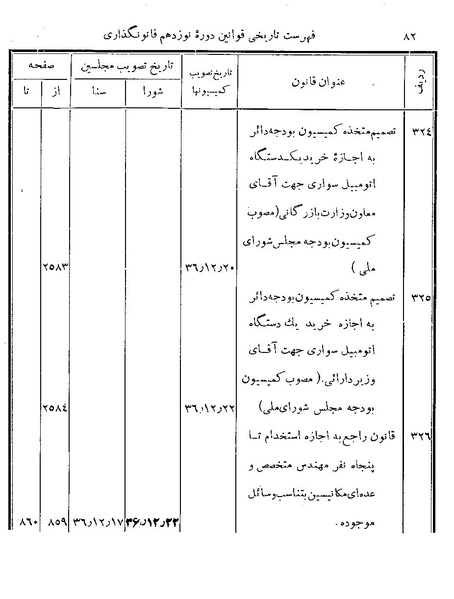 ۸۲ فهرست تاریخی قوانین دورهٔ نوزدهم قانونگذاری
ردیف عنوان قانون تاریخ تصویب کمیسیونها تاریخ تصویب مجلسین صفحه
شورا سنا از تا
۳۲٤ تصمیم متخذه کمیسیون بودجه دائر
به اجازهٔ خرید یکدستگاه
اتومبیل سواری جهت آقای
معاون وزارت بازرگانی (مصوب
کمیسیون بودجه مجلس شورای
ملی ) ۳۶٫۱۲٫۲۰ ۲۵۸۳
۳۲۵ تصمیم متخذه کمیسیون بودجه دائر
به اجازه خرید یك دستگاه
اتومبیل سواری جهت آقای
وزیر دارائی . ( مصوب کمیسیون
بودجه مجلس شورای ملی) ۳۶٫۱۲٫۲۲ ۲۵۸٤
۳۲۶ قانون راجع به اجازه استخدام تا
پنجاه نفر مهندس متخصص و
عده‌ای مکانیسین بتناسب وسائل
موجوده . ۳۶٫۱۲٫۲۲ ۳۶٫۱۲٫۱۷ ۸۵۹ ۸۶۰